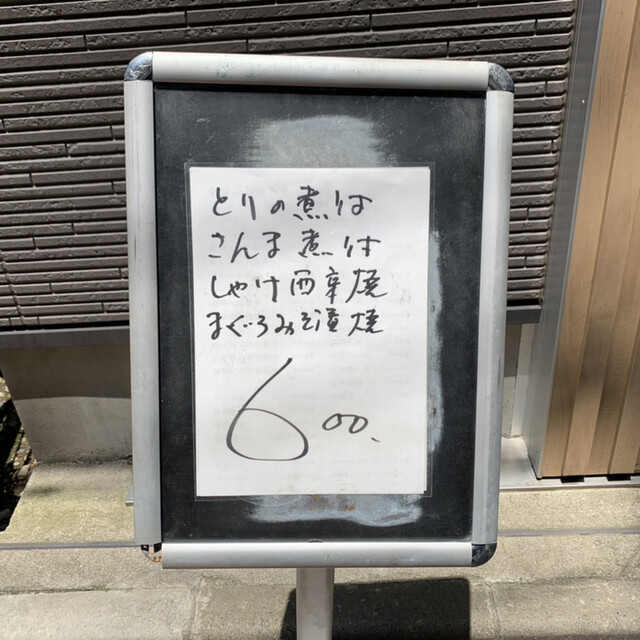 とりの煮付
さんま煮付
しゃけ西京焼
まぐろみそ漬焼
600.